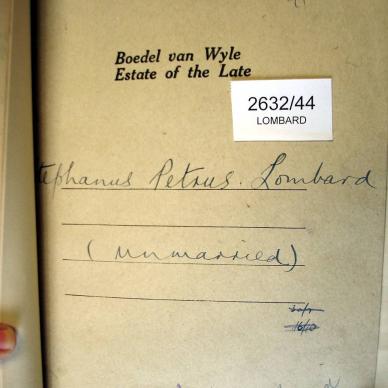 Boedel van Wyle
Estate of the Late
2632/44
LOMBARD
tephanus Petrus. Lombard
(unmarried)